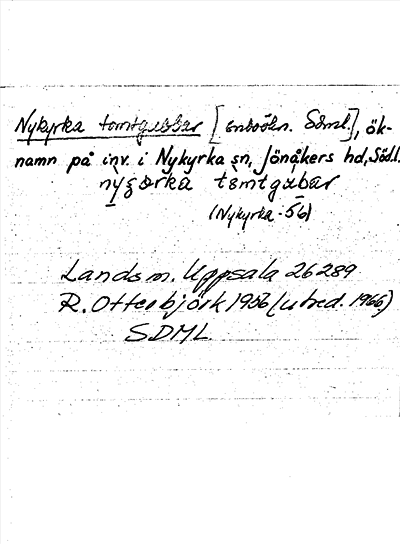 Nykyrka tomtgubbar [inbökn. Söml.], ök-
namn på inv. i Nykyrka sn, Jönåkers hd, Södl.
nyʒorka tomtgubar
(Nykyrka -56)
Landsm. Uppsala 26289
R. Otterbjörk 1956 (utred. 1966)
SDML